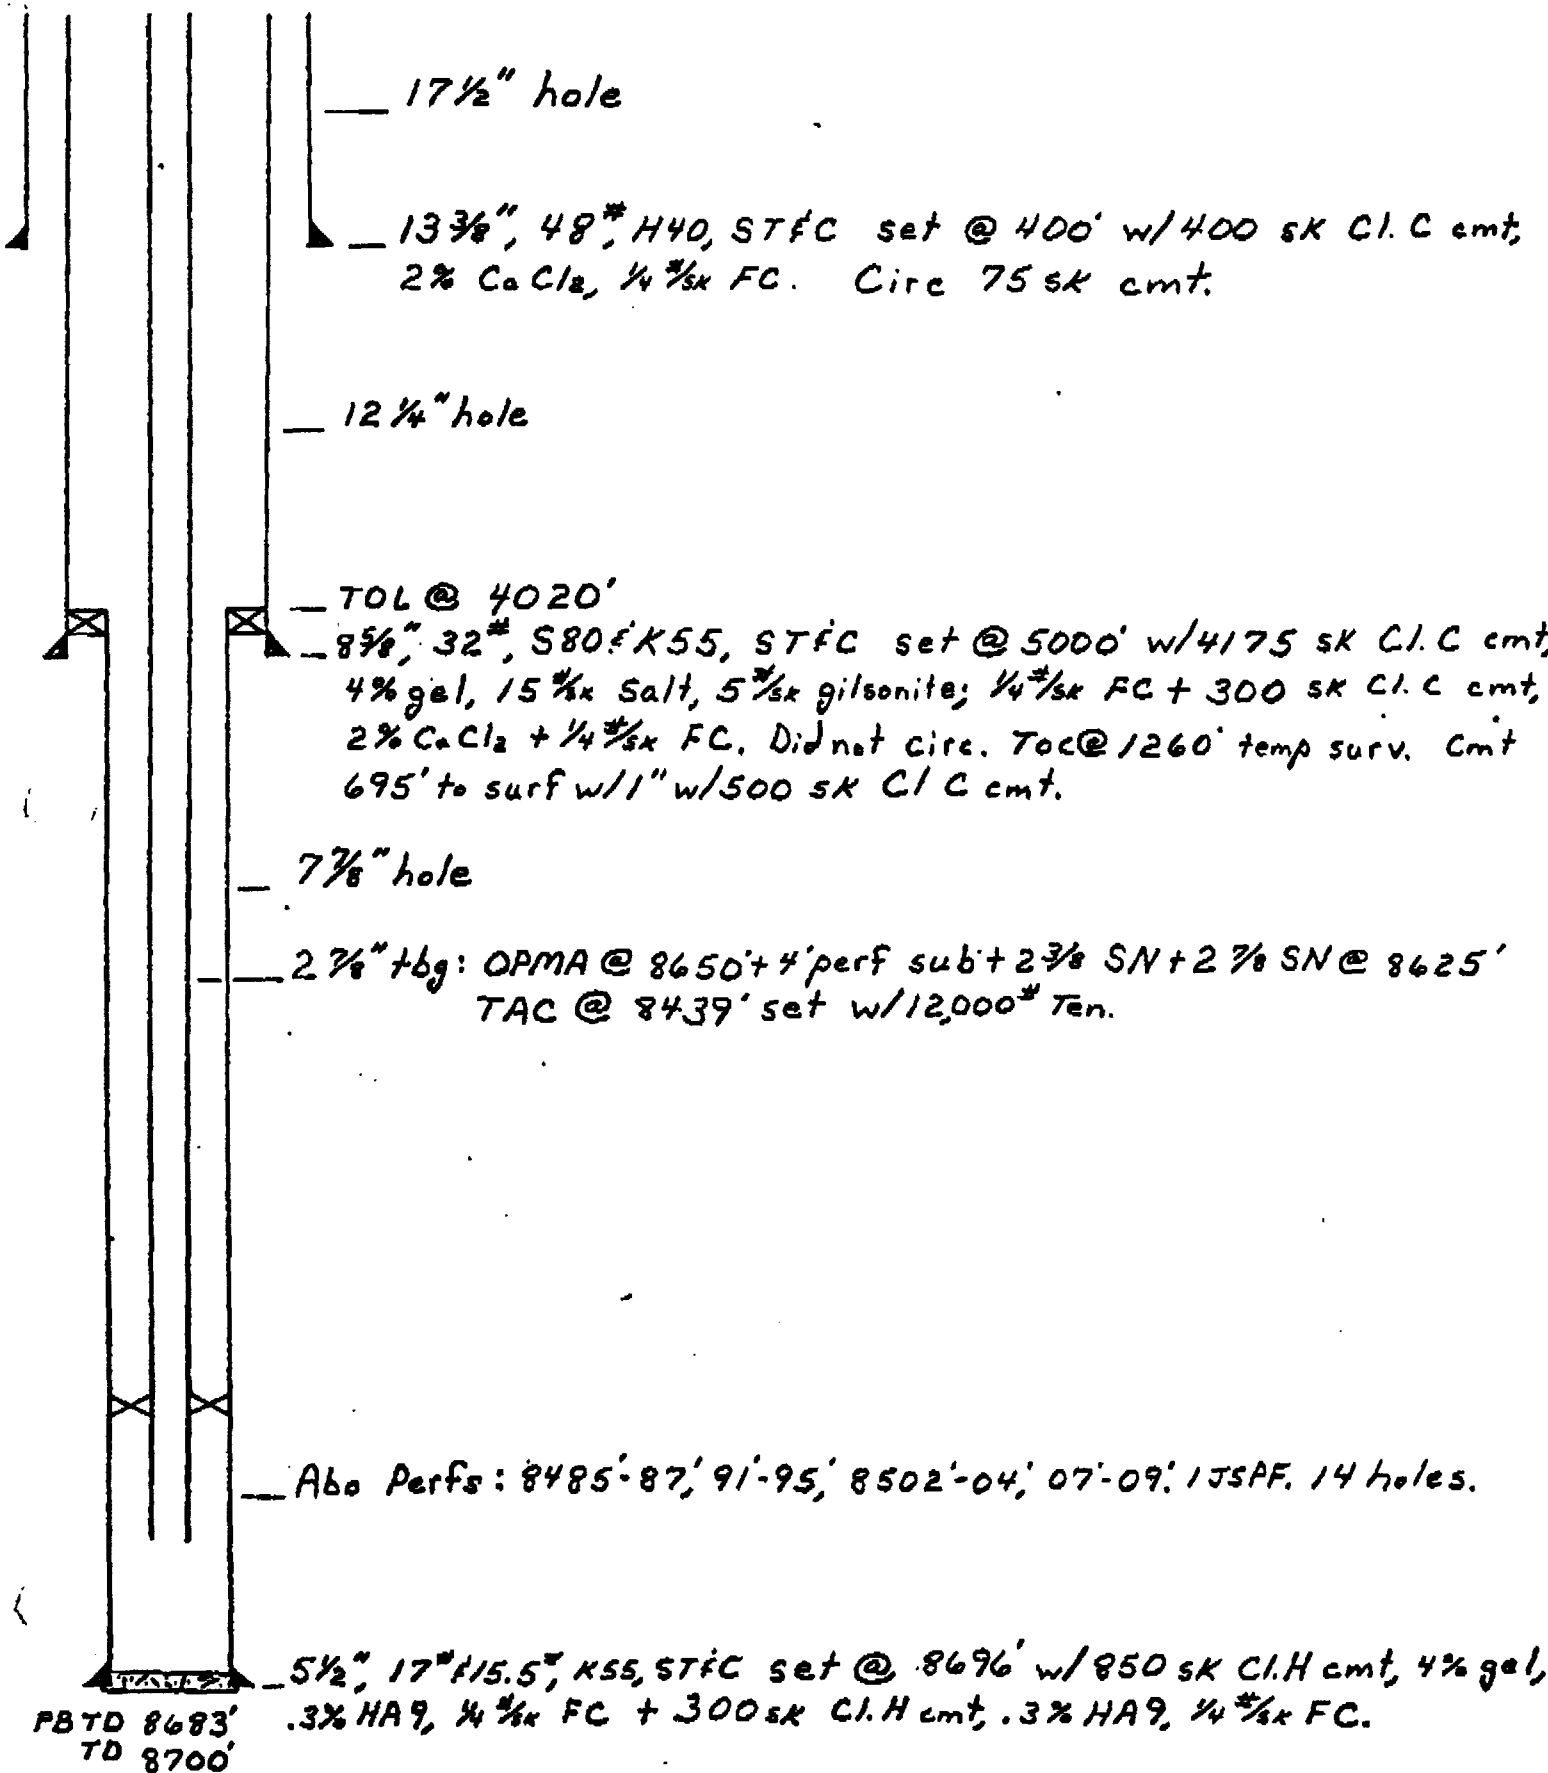 17 1/2" hole
13 3/8", 48#, H40, ST&C set @ 400' w/400 sk Cl. C cmt,
2% CaCl2, 1/4 #/sk FC. Circ 75 sk cmt.
12 1/4" hole
TOL @ 4020'
8 5/8", 32#, S80 & K55, ST&C set @ 5000' w/4175 sk Cl. C cmt,
4% gel, 15 #/sk Salt, 5 #/sk gilsonite; 1/4 #/sk FC + 300 sk Cl. C cmt,
2% CaCl2 + 1/4 #/sk FC. Did not circ. TOC @ 1260' temp surv. Cmt
695' to surf w/1" w/500 sk Cl C cmt.
7 7/8" hole
2 7/8" tbg: OPMA @ 8650' + 4' perf sub + 2 3/8 SN + 2 7/8 SN @ 8625'
TAC @ 8439' set w/12,000# Ten.
Abo Perfs: 8485'-87', 91'-95', 8502'-04', 07'-09'. 1 JSPF. 14 holes.
5 1/2", 17# & 15.5#, K55, ST&C set @ 8696' w/850 sk Cl. H cmt, 4% gel,
.3% HA9, 1/4 #/sk FC + 300 sk Cl. H cmt, .3% HA9, 1/4 #/sk FC.
PBTD 8683'
TD 8700'